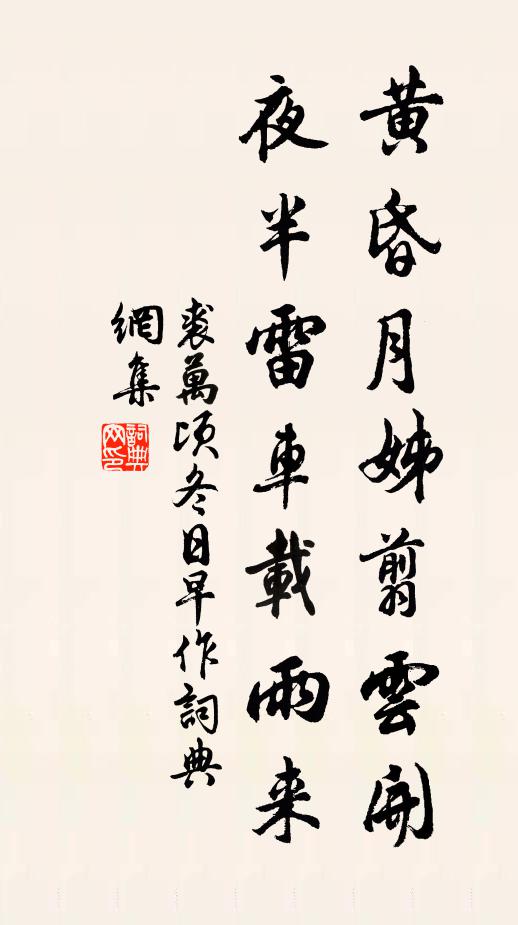 黃昏月姊翦雲開
夜半雷車載雨来
裘萬頃冬日早作詞典
網集
詞典
网印